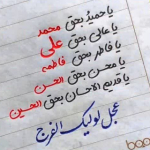 یا حمیدُ بحق محمد
یا عالی بحق علی
یا فاطر بحق فاطمه
یا محسن بحق الحسن
یا قدیم الاحسان بحق الحسین
عجل لولیک الفرج